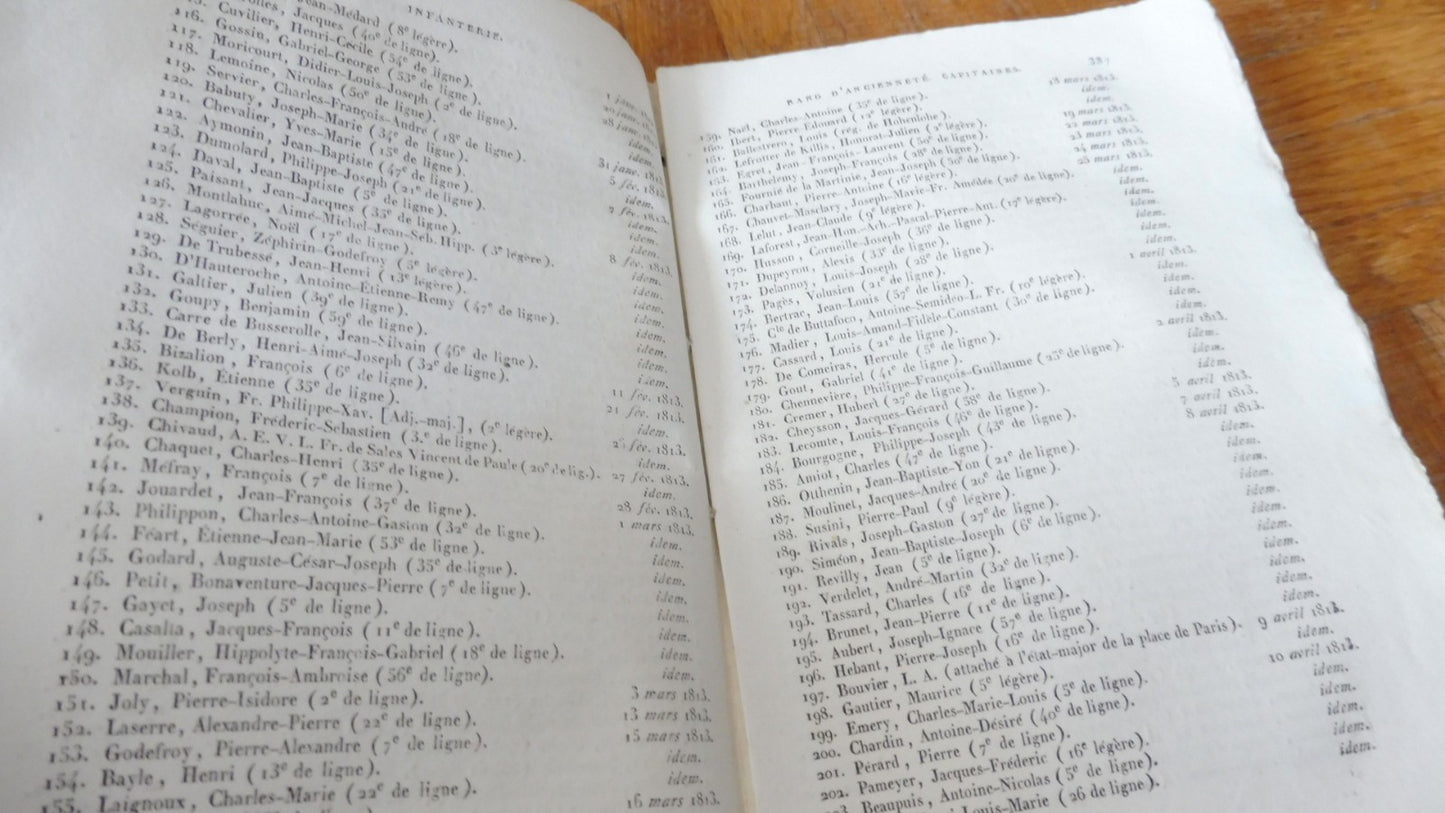 INFANTERIE.
Jean-Médard (8e légère).
Jacques (40e de ligne).
116. Cuvilier, Henri-Cécile (53e de ligne).
117. Gossin, Gabriel-George
118. Moricourt, Didier-Louis-Joseph (2e de ligne).
119. Lemoine, Nicolas (50e de ligne).
120. Servier, Charles-François-André (18e de ligne). idem.
121. Babuty, Joseph-Marie (34e de ligne).
122. Chevalier, Yves-Marie (15e de ligne).
123. Aymonin, Jean-Baptiste (47e de ligne).
124. Dumolard, Philippe-Joseph (21e de ligne).
125. Daval, Jean-Baptiste (5e de ligne).
126. Paisant, Jean-Jacques (35e de ligne).
127. Montlabuc, Aimé-Michel-Jean-Seb. Hipp. (3e légère).
128. Lagorrée, Noël (17e de ligne).
129. Séguier, Zéphirin-Godefroy (5e légère).
130. De Trubessé, Jean-Henri (13e légère).
131. D'Hauteroche, Antoine-Étienne-Remy (47e de ligne).
132. Galtier, Julien (39e de ligne).
133. Goupy, Benjamin (59e de ligne).
134. Carre de Busserolle, Jean-Silvain (46e de ligne).
135. De Berly, Henri-Aimé-Joseph (32e de ligne).
136. Bizalion, François (6e de ligne).
137. Kolb, Étienne (35e de ligne).
138. Verguin, Fr. Philippe-Xav. [Adj.-maj.], (2e légère).
139. Champion, Frédéric-Sebastien (3.e de ligne).
140. Chivaud, A. E. V. L. Fr. de Sales Vincent de Paule (20e de lig.).
141. Chaquet, Charles-Henri (35e de ligne). 27 fév. 1813.
142. Méfray, François (7e de ligne). idem.
143. Jouardet, Jean-François (37e de ligne). 28 fév. 1813.
144. Philippon, Charles-Antoine-Gaston (32e de ligne). 1 mars 1813.
145. Féart, Étienne-Jean-Marie (53e de ligne). idem.
146. Godard, Auguste-César-Joseph (35e de ligne). idem.
147. Petit, Bonaventure-Jacques-Pierre (7e de ligne). idem.
148. Gayet, Joseph (5e de ligne). idem.
149. Casalta, Jacques-François (11e de ligne). idem.
150. Mouiller, Hippolyte-François-Gabriel (18e de ligne). idem.
151. Marchal, François-Ambroise (56e de ligne). idem.
152. Joly, Pierre-Isidore (2e de ligne). 3 mars 1813.
153. Laserre, Alexandre-Pierre (22e de ligne). 13 mars 1813.
154. Godefroy, Pierre-Alexandre (7e de ligne). 15 mars 1813.
155. Bayle, Henri (13e de ligne). idem.
Laignoux, Charles-Marie (22e de ligne). 16 mars 1813.
RANG D'ANCIENNETÉ CAPITAINES. 387
159. Naël, Charles-Antoine (35e de ligne). 18 mars 1813.
160. Ibert, Pierre-Édouard (12e légère). idem.
161. Ballestrero, Louis (rég. de Hohenlohe). idem.
162. Lefrotter de Killis, Honorat-Julien (2e légère). 19 mars 1813.
163. Egret, Jean-François-Laurent (50e de ligne). 22 mars 1813.
164. Barthelemy, Joseph-François (28e de ligne). 23 mars 1813.
165. Fournié de la Martinie, Jean-Joseph (50e de ligne). 24 mars 1813.
166. Charbaut, Pierre-Antoine (16e légère). 25 mars 1813.
167. Chauvet-Masclary, Joseph-Marie-Fr. Amédée (20e de ligne). idem.
168. Lelut, Jean-Claude (9e légère). idem.
169. Laforest, Jean-Hon.-Arh.-Pascal-Pierre-Ant. (17e légère). idem.
170. Husson, Corneille-Joseph (36e de ligne). idem.
171. Dupeyron, Alexis (33e de ligne). idem.
172. Delannoy, Louis-Joseph (28e de ligne). idem.
173. Pagès, Volusien (21e de ligne). 1 avril 1813.
174. Bertrac, Jean-Louis (57e de ligne). idem.
175. Cte de Buttafoco, Antoine-Semidéo-L. Fr. (10e légère). idem.
176. Madier, Louis-Amand-Fidèle-Constant (30e de ligne). idem.
177. Cassard, Louis (21e de ligne). 2 avril 1813.
178. De Comeiras, Hercule (5e de ligne). idem.
179. Gout, Gabriel (41e de ligne). idem.
180. Chennevière, Philippe-François-Guillaume (23e de ligne). idem.
181. Cremer, Hubert (27e de ligne). 5 avril 1813.
182. Cheysson, Jacques-Gérard (38e de ligne). 7 avril 1813.
183. Lecomte, Louis-François (46e de ligne). 8 avril 1813.
184. Bourgogne, Philippe-Joseph (43e de ligne). idem.
185. Amiot, Charles (47e de ligne). idem.
186. Otthenin, Jean-Baptiste-Yon (21e de ligne). idem.
187. Moulinet, Jacques-André (20e de ligne). idem.
188. Susini, Pierre-Paul (9e légère). idem.
189. Rivals, Joseph-Gaston (27e de ligne). idem.
190. Siméon, Jean-Baptiste-Joseph (6e de ligne). idem.
191. Revilly, Jean (5e de ligne). idem.
192. Verdelet, André-Martin (32e de ligne). idem.
193. Tassard, Charles (16e de ligne). idem.
194. Brunet, Jean-Pierre (11e de ligne). idem.
195. Aubert, Joseph-Ignace (57e de ligne).
196. Hebant, Pierre-Joseph (16e de ligne).
197. Bouvier, L. A. (attaché à l'état-major de la place de Paris). 9 avril 1813.
198. Gautier, Maurice (5e légère). idem.
199. Emery, Charles-Marie-Louis (5e de ligne). 10 avril 1813.
200. Chardin, Antoine-Désiré (40e de ligne). idem.
201. Pérard, Pierre (7e de ligne). idem.
202. Pameyer, Jacques-Fréderic (16e légère). idem.
Beaupuis, Antoine-Nicolas (5e de ligne). idem.
Louis-Marie (26 de ligne).